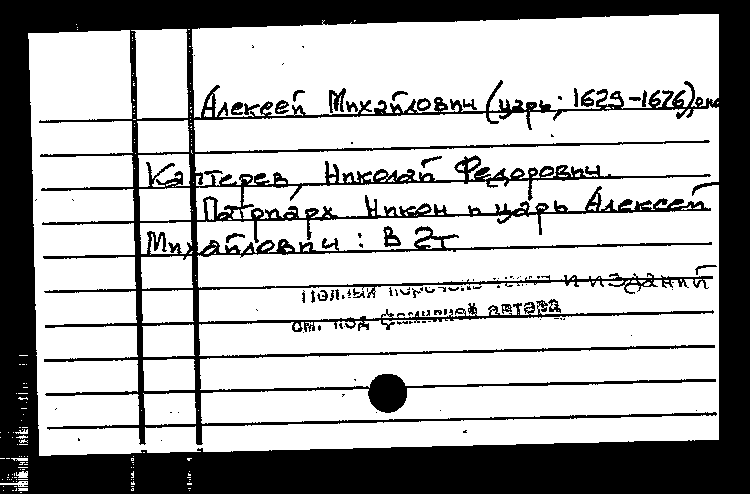 Алексей Михайлович (царь; 1629-1676),
Каптерев, Николай Федорович.
Патриарх Никон и царь Алексей
Михайлович : В 2т
Полный перечень и изданий
см. под фамилией автора